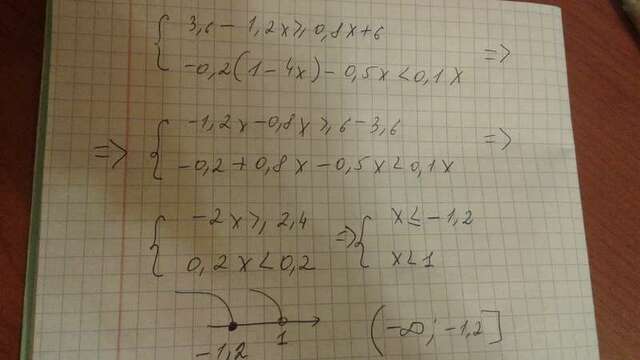 { 3,6 - 1,2x ≥ 0,8x+6
-0,2(1-4x) - 0,5x < 0,1x =>
=> { -1,2x-0,8x ≥ 6-3,6
-0,2+0,8x-0,5x<0,1x =>
{ -2x ≥ 2,4
0,2x<0,2 => { x ≤ -1,2
x<1
-1,2 1 (-∞; -1,2]